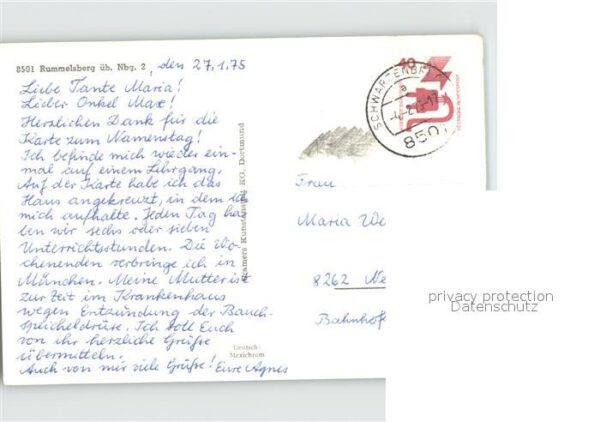 8501 Rummelsberg üb. Nbg. 2, den 27.1.75
Liebe Tante Maria!
Lieber Onkel Max!
Herzlichen Dank für die
Karte zum Namenstag!
Ich befinde mich wieder ein-
mal auf einem Lehrgang.
Auf der Karte habe ich das
Haus angekreuzt, in dem ich
mich aufhalte. Jeden Tag ha
ben wir sechs oder sieben
Unterrichtsstunden. Die Wo-
chenenden verbringe ich in
München. Meine Mutter ist
zur Zeit im Krankenhaus
wegen Entzündung der Bauch-
speicheldrüse. Ich soll Euch
von ihr herzliche Grüße
übermitteln.
Auch von mir viele Grüße! Eure Agnes
KG, Dortmund
Deutsch-
Mexichrom
40
SCHWARZENB
8501
Frau
Maria We
8262 Ne
Bahnhofs
privacy protection
Datenschutz